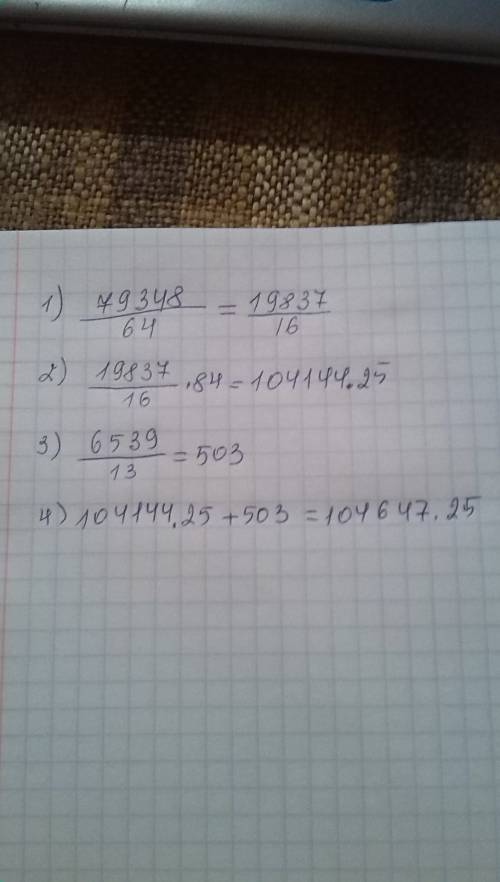 1) 79348/64 = 19837/16
2) 19837/16 · 84 = 104144.25
3) 6539/13 = 503
4) 104144.25 + 503 = 104647.25